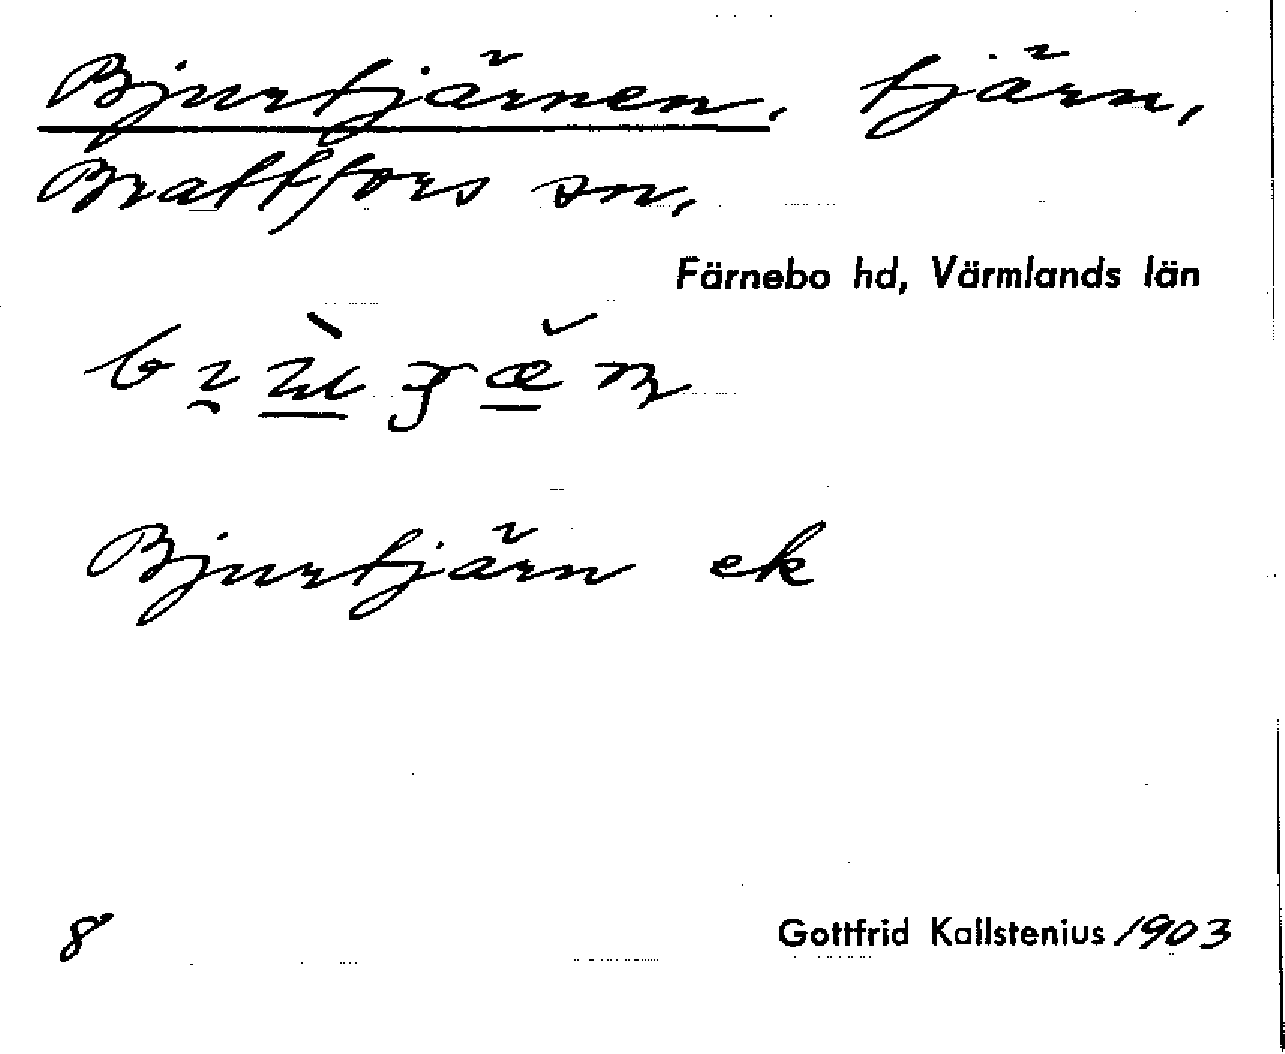 Bjurtjärnen, tjärn,
Brattfors sn,
Färnebo hd, Värmlands län
Bjurtjärn ek
8
Gottfrid Kallstenius 1903